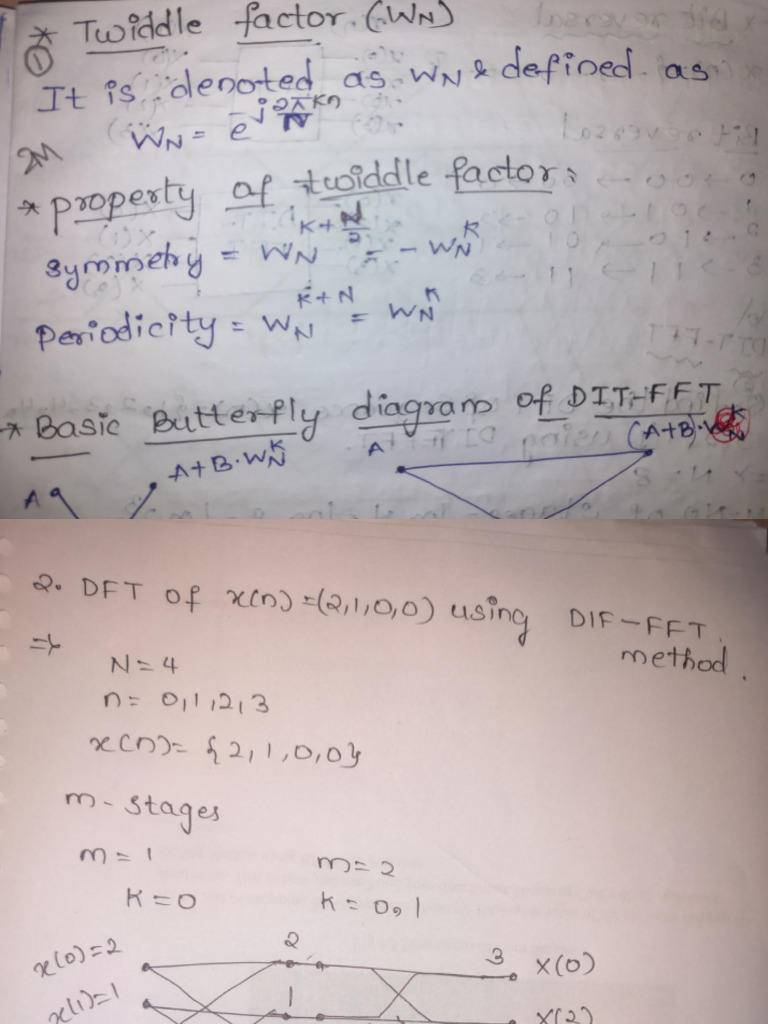 * Twiddle factor (WN)
①
It is denoted as WN & defined as
WN = e^-j 2π/N kn
2M
* property of twiddle factor:
symmetry = WN^K+N/2 = - WN^K
Periodicity = WN^K+N = WN^K
* Basic Butterfly diagram of DIT-FFT
A A+B·WN^K A (A+B)·WN^K
2. DFT of x(n)=(2,1,0,0) using DIF-FFT
method.
⇒
N=4
n= 0,1,2,3
x(n)= {2,1,0,0}
m-stages
m=1 m=2
K=0 K=0,1
x(0)=2 2 3 X(0)
x(1)=1 1 X(2)